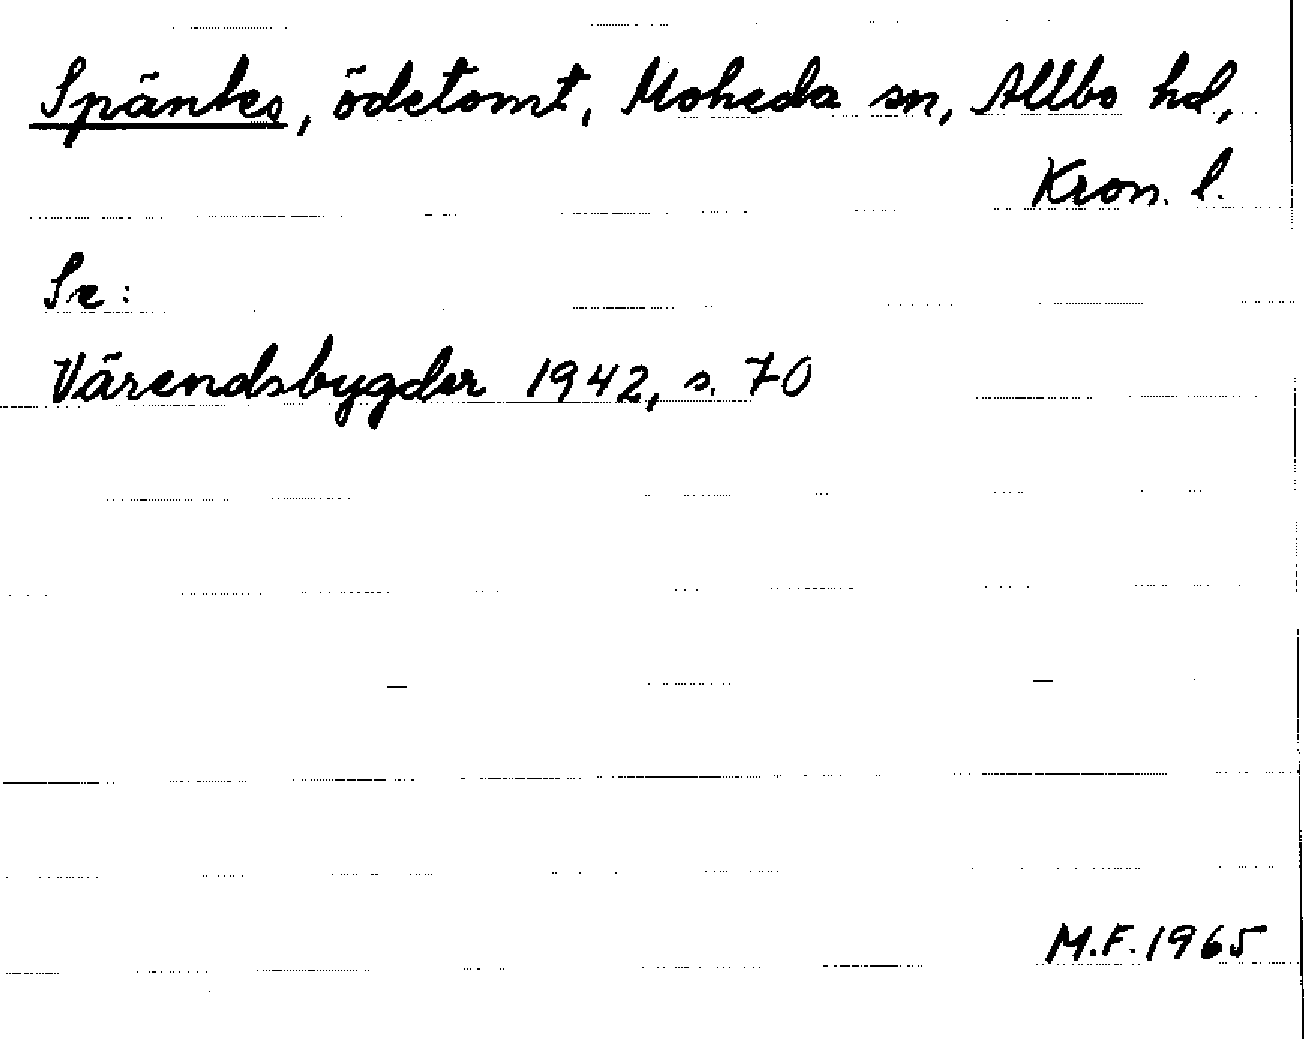 Späntes, ödetomt, Moheda sn, Allbo hd,
Kron. l.
Se:
Värendsbygder 1942, s. 70
M.F. 1965